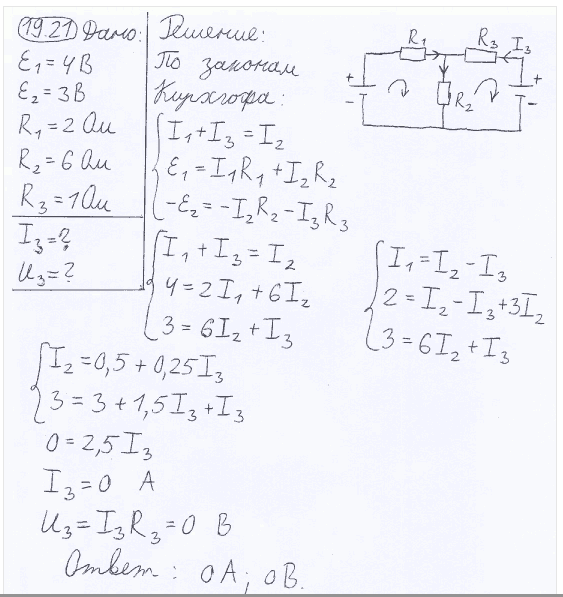 19.21 Дано:
Ɛ₁ = 4 В
Ɛ₂ = 3 В
R₁ = 2 Ом
R₂ = 6 Ом
R₃ = 1 Ом
I₃ = ?
U₃ = ?
Решение:
По законам
Кирхгофа:
I₁ + I₃ = I₂
Ɛ₁ = I₁R₁ + I₂R₂
-Ɛ₂ = -I₂R₂ - I₃R₃
R₁ R₃ I₃
+ +
- R₂ -
I₁ + I₃ = I₂
4 = 2I₁ + 6I₂
3 = 6I₂ + I₃
I₁ = I₂ - I₃
2 = I₂ - I₃ + 3I₂
3 = 6I₂ + I₃
I₂ = 0,5 + 0,25I₃
3 = 3 + 1,5I₃ + I₃
0 = 2,5I₃
I₃ = 0 А
U₃ = I₃R₃ = 0 В
Ответ: 0А; 0В.